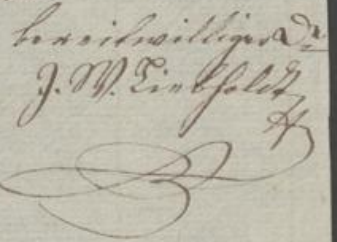 bereitwilliger Dr.
J. W. Liebholdt